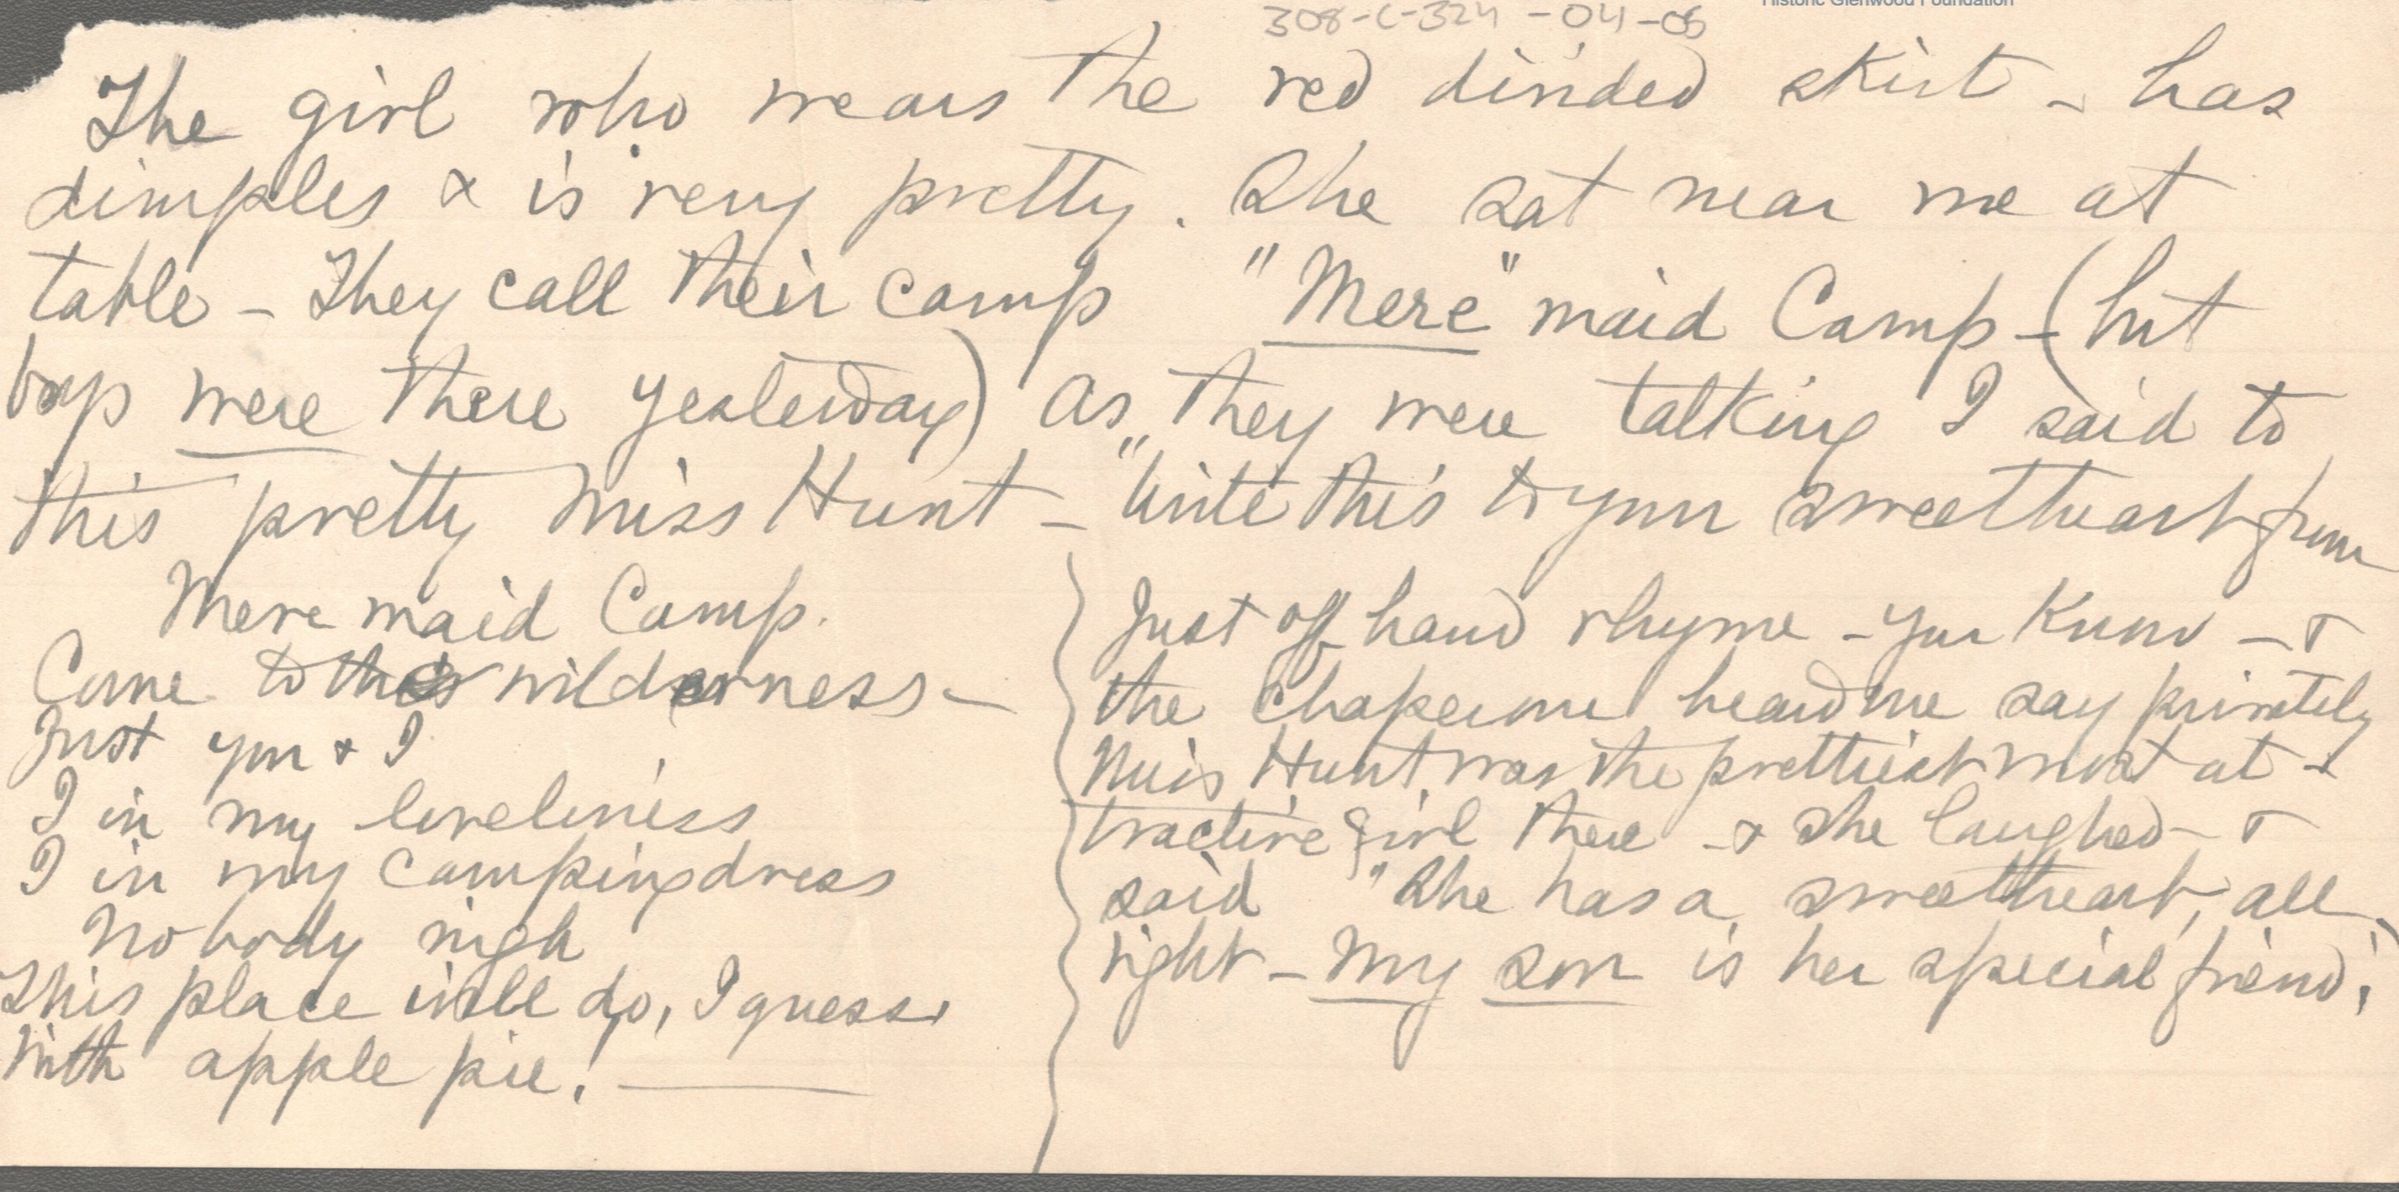 Historic Glenwood Foundation
308-C-324-04-05
The girl who wears the red divided skirt - has
dimples & is very pretty. She sat near me at
table - They call their camp "Mere" maid Camp - (but
boys were there yesterday) As they were talking I said to
this pretty Miss Hunt - "Write this to your sweetheart from
Mere maid Camp.
Come to this wilderness -
Just you & I
I in my loveliness
I in my camping dress
Nobody nigh
This place will do, I guess,
With apple pie!
Just off hand rhyme - you know - &
the chaperone heard me say privately
Miss Hunt was the prettiest most at-
tractive girl there - & she laughed - &
said "She has a sweetheart, all
right - My son is her special friend,"